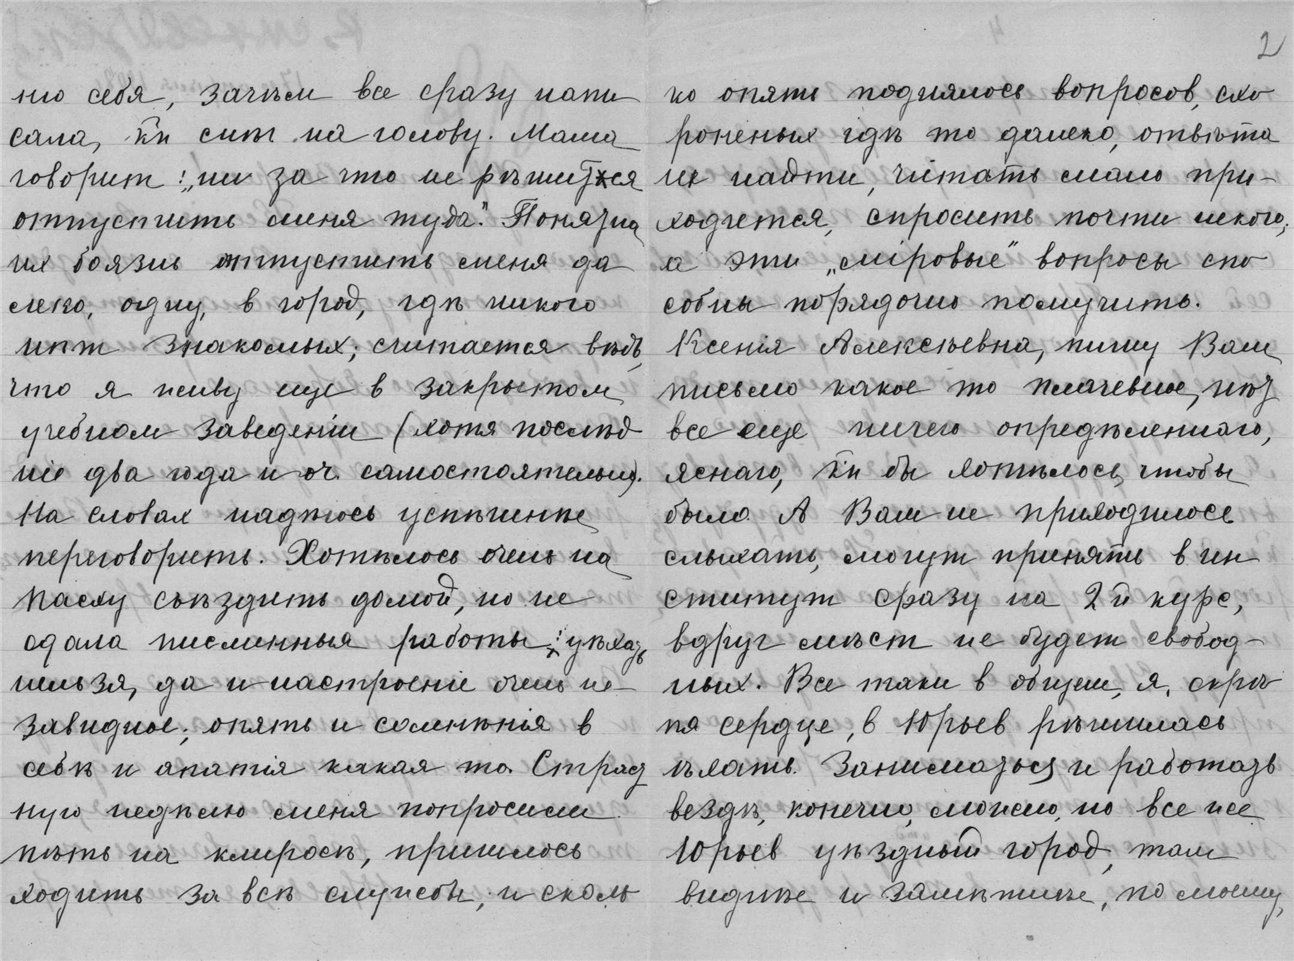 2
ню себя, зачѣм все сразу напи
сала, кк снѣг на голову. Мама
говорит: „ни за что не рѣшится
отпустить меня туда“. Понятна
их боязнь отпустить меня да
леко, одну, в город, гдѣ никого
нѣт знакомых; считается вѣдь,
что я живу еще в закрытом
учебном заведеніи (хотя послѣд
ніе два года и оч. самостоятельно).
На словах надѣюсь успѣшнѣе
переговорить. Хотѣлось очень на
Пасху съѣздить домой, но не
сдала письменныя работы; уѣхать
нельзя, да и настроеніе очень не-
завидное; опять и сомнѣнія в
себѣ и апатія какая то. Страст
ную недѣлю меня попросили
пѣть на клиросѣ, пришлось
ходить за всѣ службы, и сколь
ко опять поднялось вопросов, схо
роненых гдѣ то далеко, отвѣта
не найти, читать мало при-
ходится, спросить почти некого,
а эти „міровые“ вопросы спо
собны порядочно помучить.
Ксенія Алексѣевна, пишу Вам
письмо какое то плачевное, нѣт
все еще ничего опредѣленнаго,
яснаго, кк бы хотѣлось, чтобы
было. А Вам не приходилось
слыхать, могут принять в ин-
ститут сразу на 2й курс,
вдруг мѣст не будет свобод-
ных. Все таки в общем, я, скрѣ
пя сердце, в Юрьев рѣшилась
ѣхать. Заниматься и работать
вездѣ, конечно, можно, но все же
Юрьев уѣздный город, там
виднѣе и замѣтнѣе, по моему,